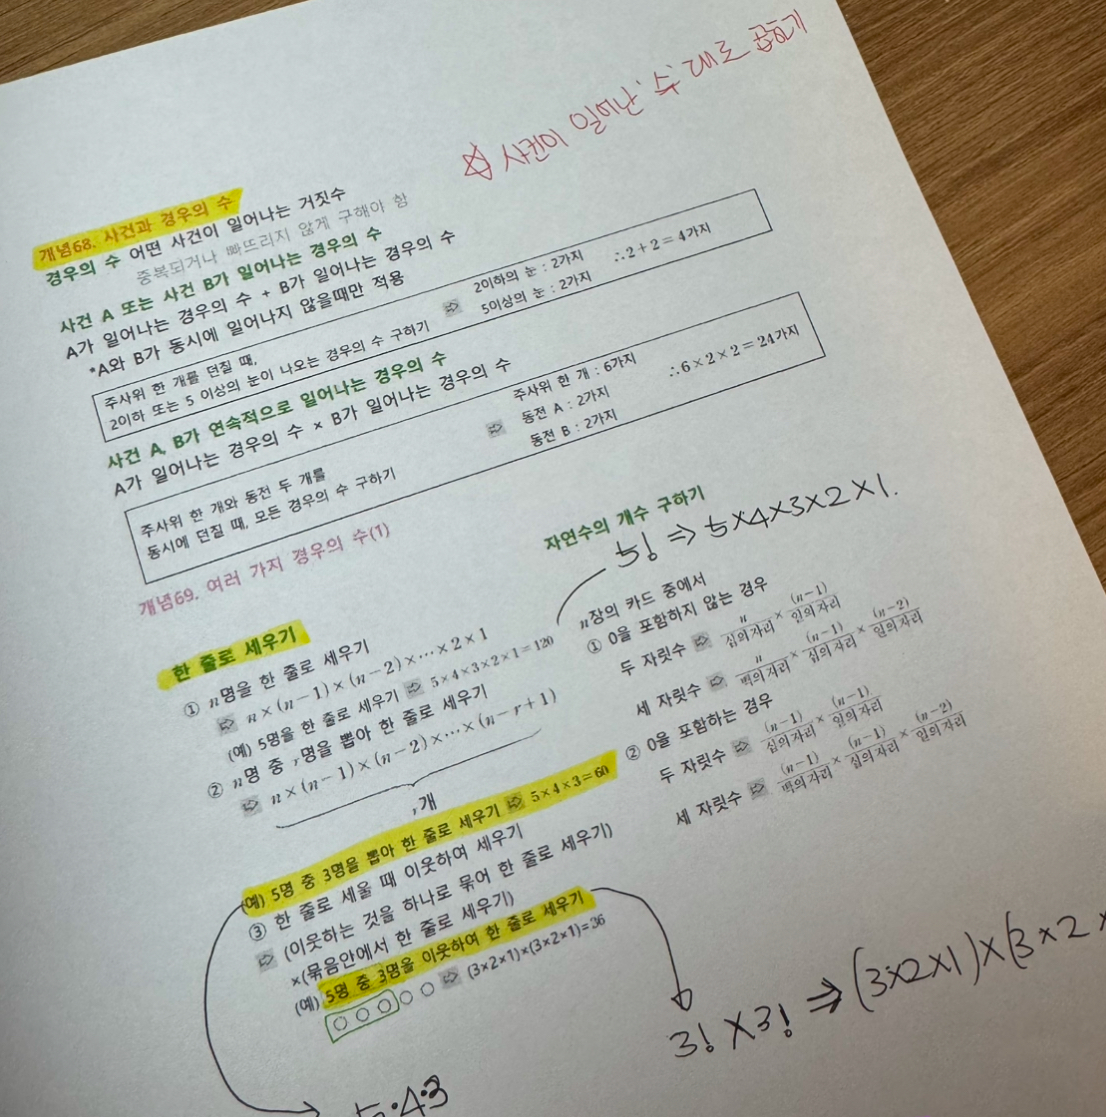 ☆ 사건이 일어난 수 대로 곱하기
개념68. 사건과 경우의 수
경우의 수 어떤 사건이 일어나는 거짓수
중복되거나 빠뜨리지 않게 구해야 함
사건 A 또는 사건 B가 일어나는 경우의 수
A가 일어나는 경우의 수 + B가 일어나는 경우의 수
*A와 B가 동시에 일어나지 않을때만 적용
주사위 한 개를 던질 때,
2이하 또는 5 이상의 눈이 나오는 경우의 수 구하기
⇨ 2이하의 눈 : 2가지
5이상의 눈 : 2가지
∴2+2=4가지
사건 A, B가 연속적으로 일어나는 경우의 수
A가 일어나는 경우의 수 × B가 일어나는 경우의 수
주사위 한 개와 동전 두 개를
동시에 던질 때, 모든 경우의 수 구하기
⇨ 주사위 한 개 : 6가지
동전 A : 2가지
동전 B : 2가지
∴6×2×2=24가지
개념69. 여러 가지 경우의 수(1)
한 줄로 세우기
① n명을 한 줄로 세우기
⇨ n×(n-1)×(n-2)×⋯×2×1
(예) 5명을 한 줄로 세우기 ⇨ 5×4×3×2×1=120
② n명 중 r명을 뽑아 한 줄로 세우기
⇨ n×(n-1)×(n-2)×⋯×(n-r+1)
r개
(예) 5명 중 3명을 뽑아 한 줄로 세우기 ⇨ 5×4×3=60
③ 한 줄로 세울 때 이웃하여 세우기
⇨ (이웃하는 것을 하나로 묶어 한 줄로 세우기)
×(묶음안에서 한 줄로 세우기)
(예) 5명 중 3명을 이웃하여 한 줄로 세우기
○○○○○ ⇨ (3×2×1)×(3×2×1)=36
5·4·3
자연수의 개수 구하기
5! ⇒ 5×4×3×2×1.
n장의 카드 중에서
① 0을 포함하지 않는 경우
두 자릿수 ⇨ n/십의자리 × (n-1)/일의자리
세 자릿수 ⇨ n/백의자리 × (n-1)/십의자리 × (n-2)/일의자리
② 0을 포함하는 경우
두 자릿수 ⇨ (n-1)/십의자리 × (n-1)/일의자리
세 자릿수 ⇨ (n-1)/백의자리 × (n-1)/십의자리 × (n-2)/일의자리
3!×3! ⇒ (3×2×1)×(3×2×